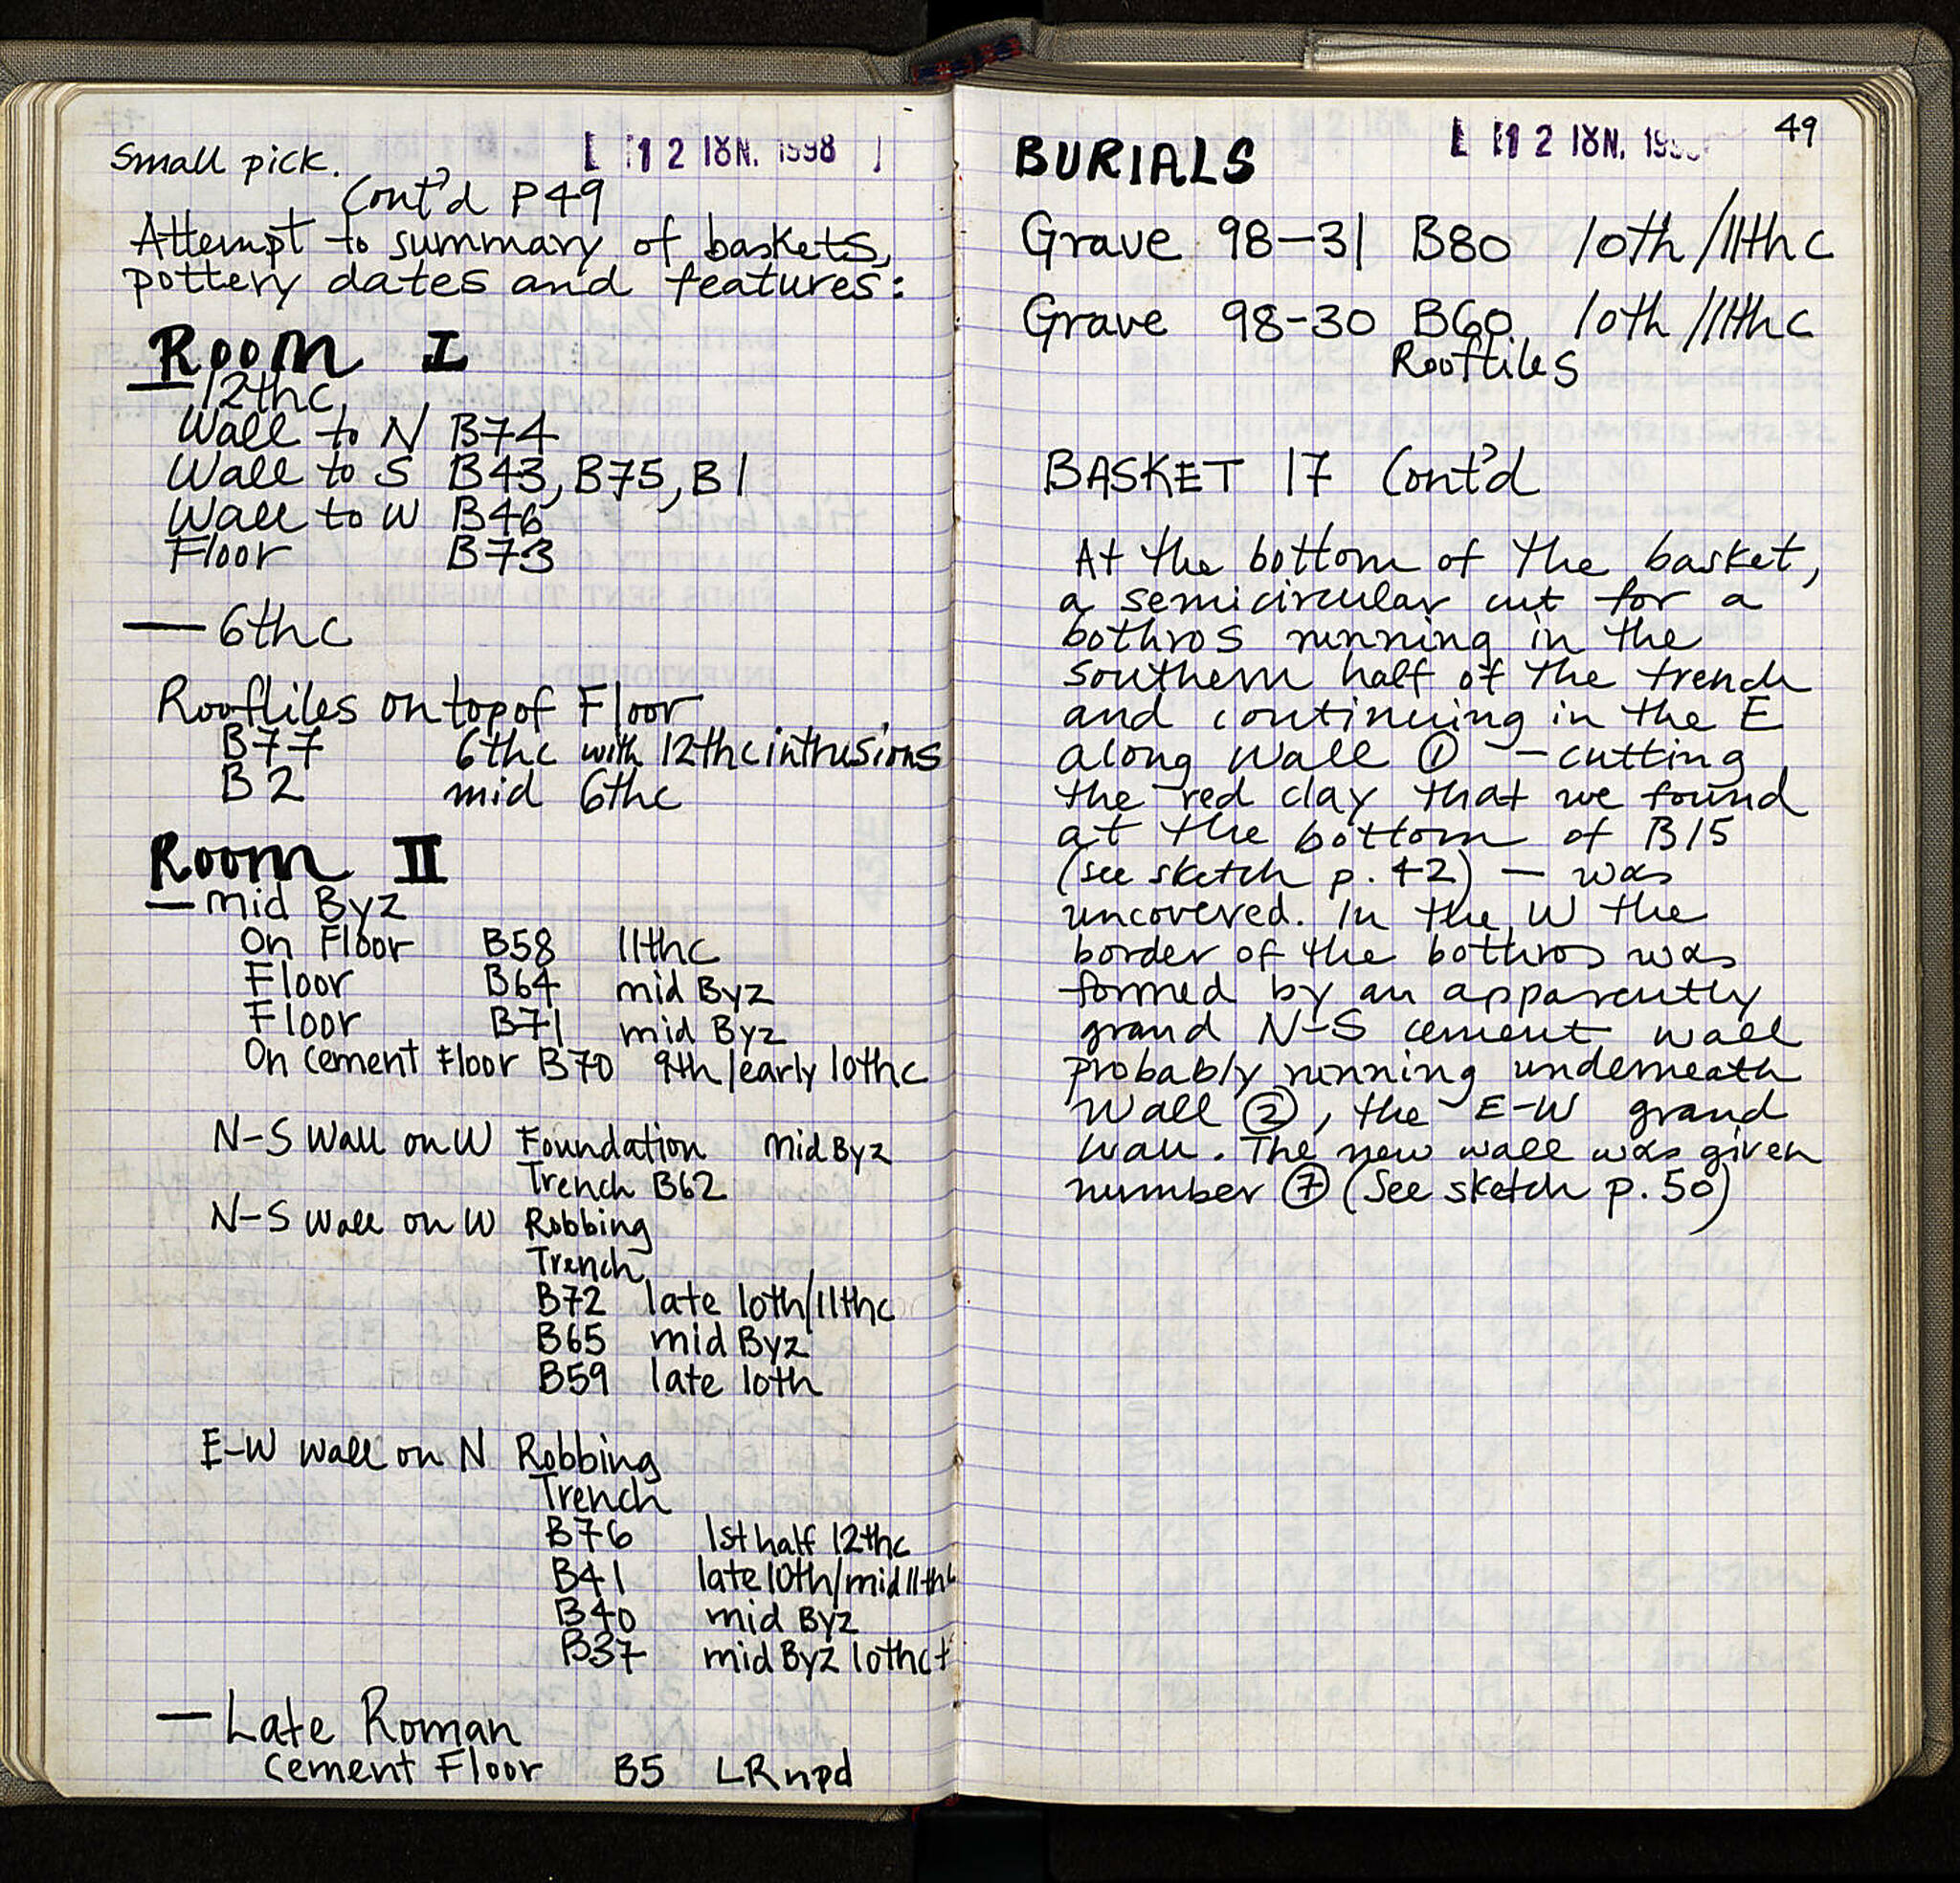 [ 12 ΙΟΥΝ. 1998 ]
Small pick.
Cont'd P49
Attempt to summary of baskets,
pottery dates and features:
Room I
—12thc
Wall to N B74
Wall to S B43, B75, B1
Wall to W B46
Floor B73
— 6thc
Rooftiles on top of Floor
B77 6thc with 12thc intrusions
B2 mid 6thc
Room II
— mid Byz
On Floor B58 11thc
Floor B64 mid Byz
Floor B71 mid Byz
On cement Floor B70 9th/early 10thc
N-S Wall on W Foundation mid Byz
Trench B62
N-S Wall on W Robbing
Trench
B72 late 10th/11thc
B65 mid Byz
B59 late 10th
E-W Wall on N Robbing
Trench
B76 1st half 12thc
B41 late 10th/mid 11thc
B40 mid Byz
B37 mid Byz 10thc+
— Late Roman
Cement Floor B5 LRnpd
[ 12 ΙΟΥΝ. 49
BURIALS
Grave 98-31 B80 10th/11thc
Grave 98-30 B60 10th/11thc
Rooftiles
BASKET 17 Cont'd
At the bottom of the basket,
a semicircular cut for a
bothros running in the
southern half of the trench
and continuing in the E
along Wall ① — cutting
the red clay that we found
at the bottom of B15
(see sketch p. 42) — was
uncovered. In the W the
border of the bothros was
formed by an apparently
grand N-S cement wall
probably running underneath
Wall ②, the E-W grand
wall. The new wall was given
number ⑦ (See sketch p. 50)